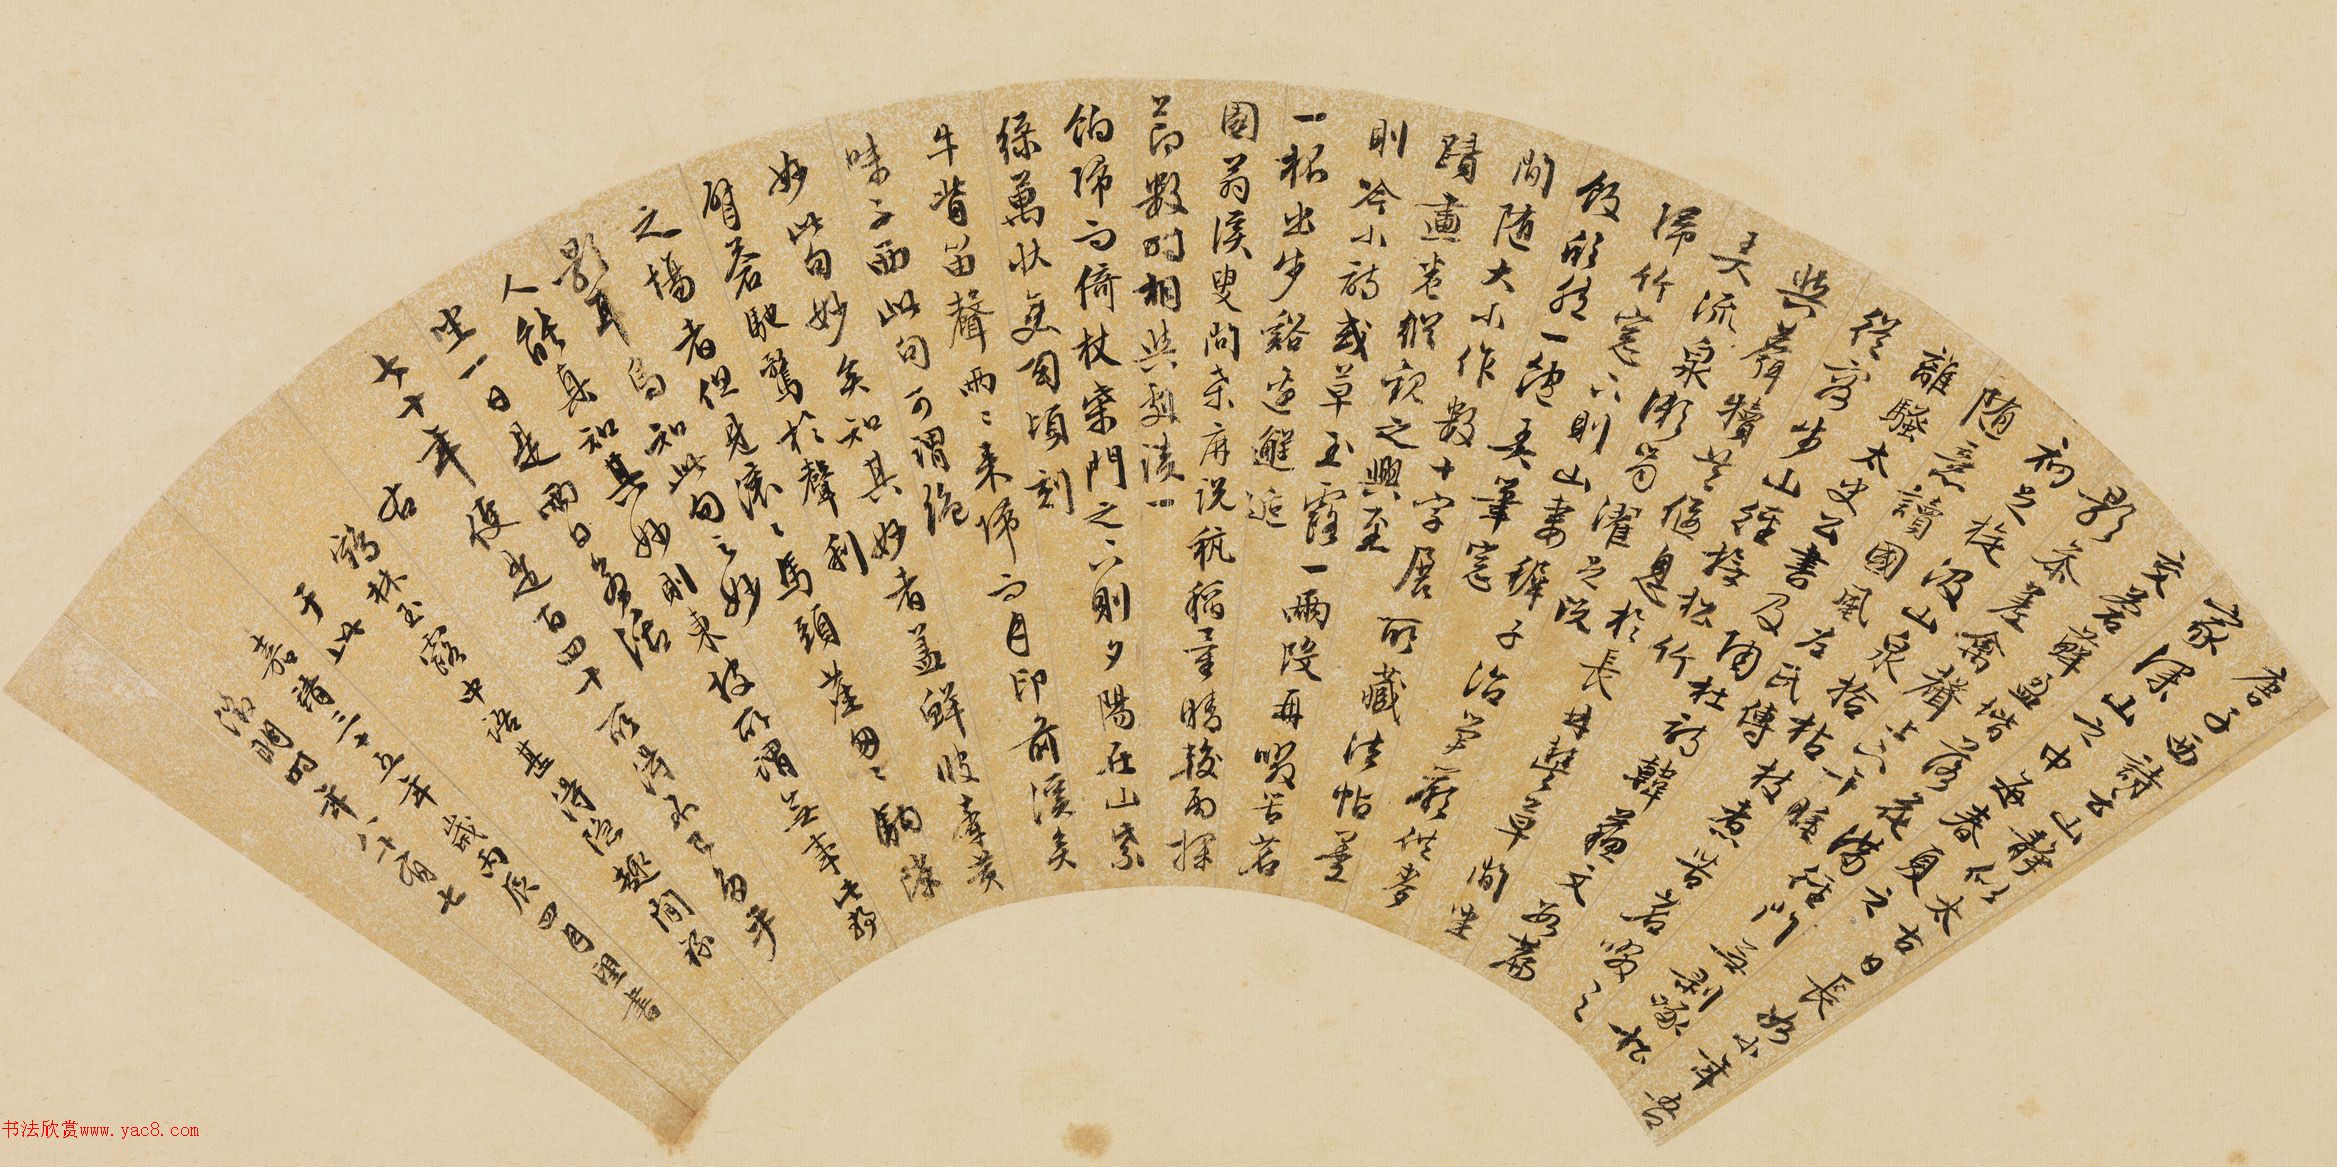 唐子西詩云山靜似太古日長如小年吾
家深山之中每春夏
交蒼蘚盈階落花滿徑門無剝啄松
影參差禽聲上下午睡
初足旋汲山泉拾松枝煮苦茗啜之
隨意讀
離騷太史公書及陶
杜詩韓蘇文數篇
從容步山徑撫松竹
與麛犢共偃息於長林豐草間坐
弄流泉漱
歸竹窓下則山妻稚子治
供麥
飯欣然一飽弄筆窓
間隨大小作數十字展所藏法帖墨
蹟畫卷縱觀之興至
則
小詩或草玉露一兩段再啜苦茗
一杯出步谿邊邂逅
園翁溪叟問桑麻說秔稻量晴較雨探
節數時相與劇談一
餉歸而倚杖柴門之下則夕陽在山紫
綠萬狀變幻頃刻
牛背笛聲兩兩來歸而月印前溪矣
味子西此句可謂絕
妙此句妙矣知其妙者蓋鮮彼牽黃
臂蒼馳騖於聲利
之場者但見滾滾馬頭塵匆匆駒隙
影耳烏知此句之妙
人能真知其妙則東坡所謂無事此靜
坐一日是兩日若活
七十年便是百四十所得不已多乎
右鶴林玉露中語甚得隱趣
嘉靖三十五年歲丙辰四月
書